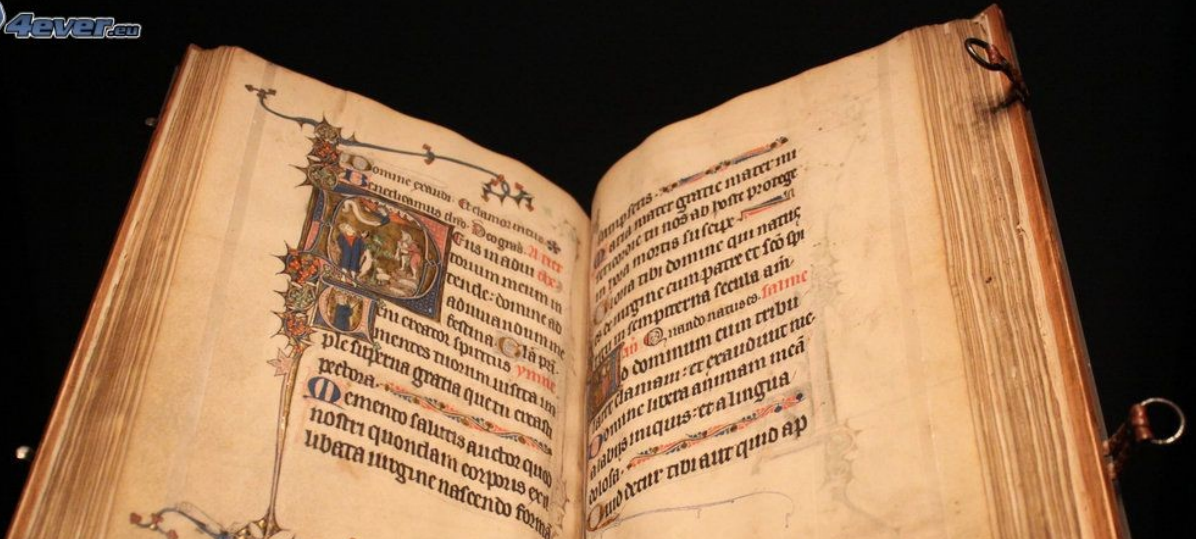 4ever.eu
Domine exaudi. Et clamor meus
Benedicamus dno. Deo gras.
Eus in adiu
torium meum in
tende: domine ad
adiuuandum me
festina. Gla pa
eni creator spiritus ymne
mentes tuorum uisita im
ple superna gratia que tu creasti
pectora.
Memento salutis auctor quod
nostri quondam corporis ex
libata uirgine nascendo formã
sumpseris.
aria mater gratie mater mi
sericordie tu nos ab hoste protege
in hora mortis suscipe
loria tibi domine qui natus
es de uirgine cum patre et sco spi
ritu in sempiterna secula am.
an Quando natus es. salme
d dominum cum tribu
larer clamaui: et exaudiuit me.
Domine libera animam meã
a labijs iniquis: et a lingua
dolosa.
Quid detur tibi aut quid ap